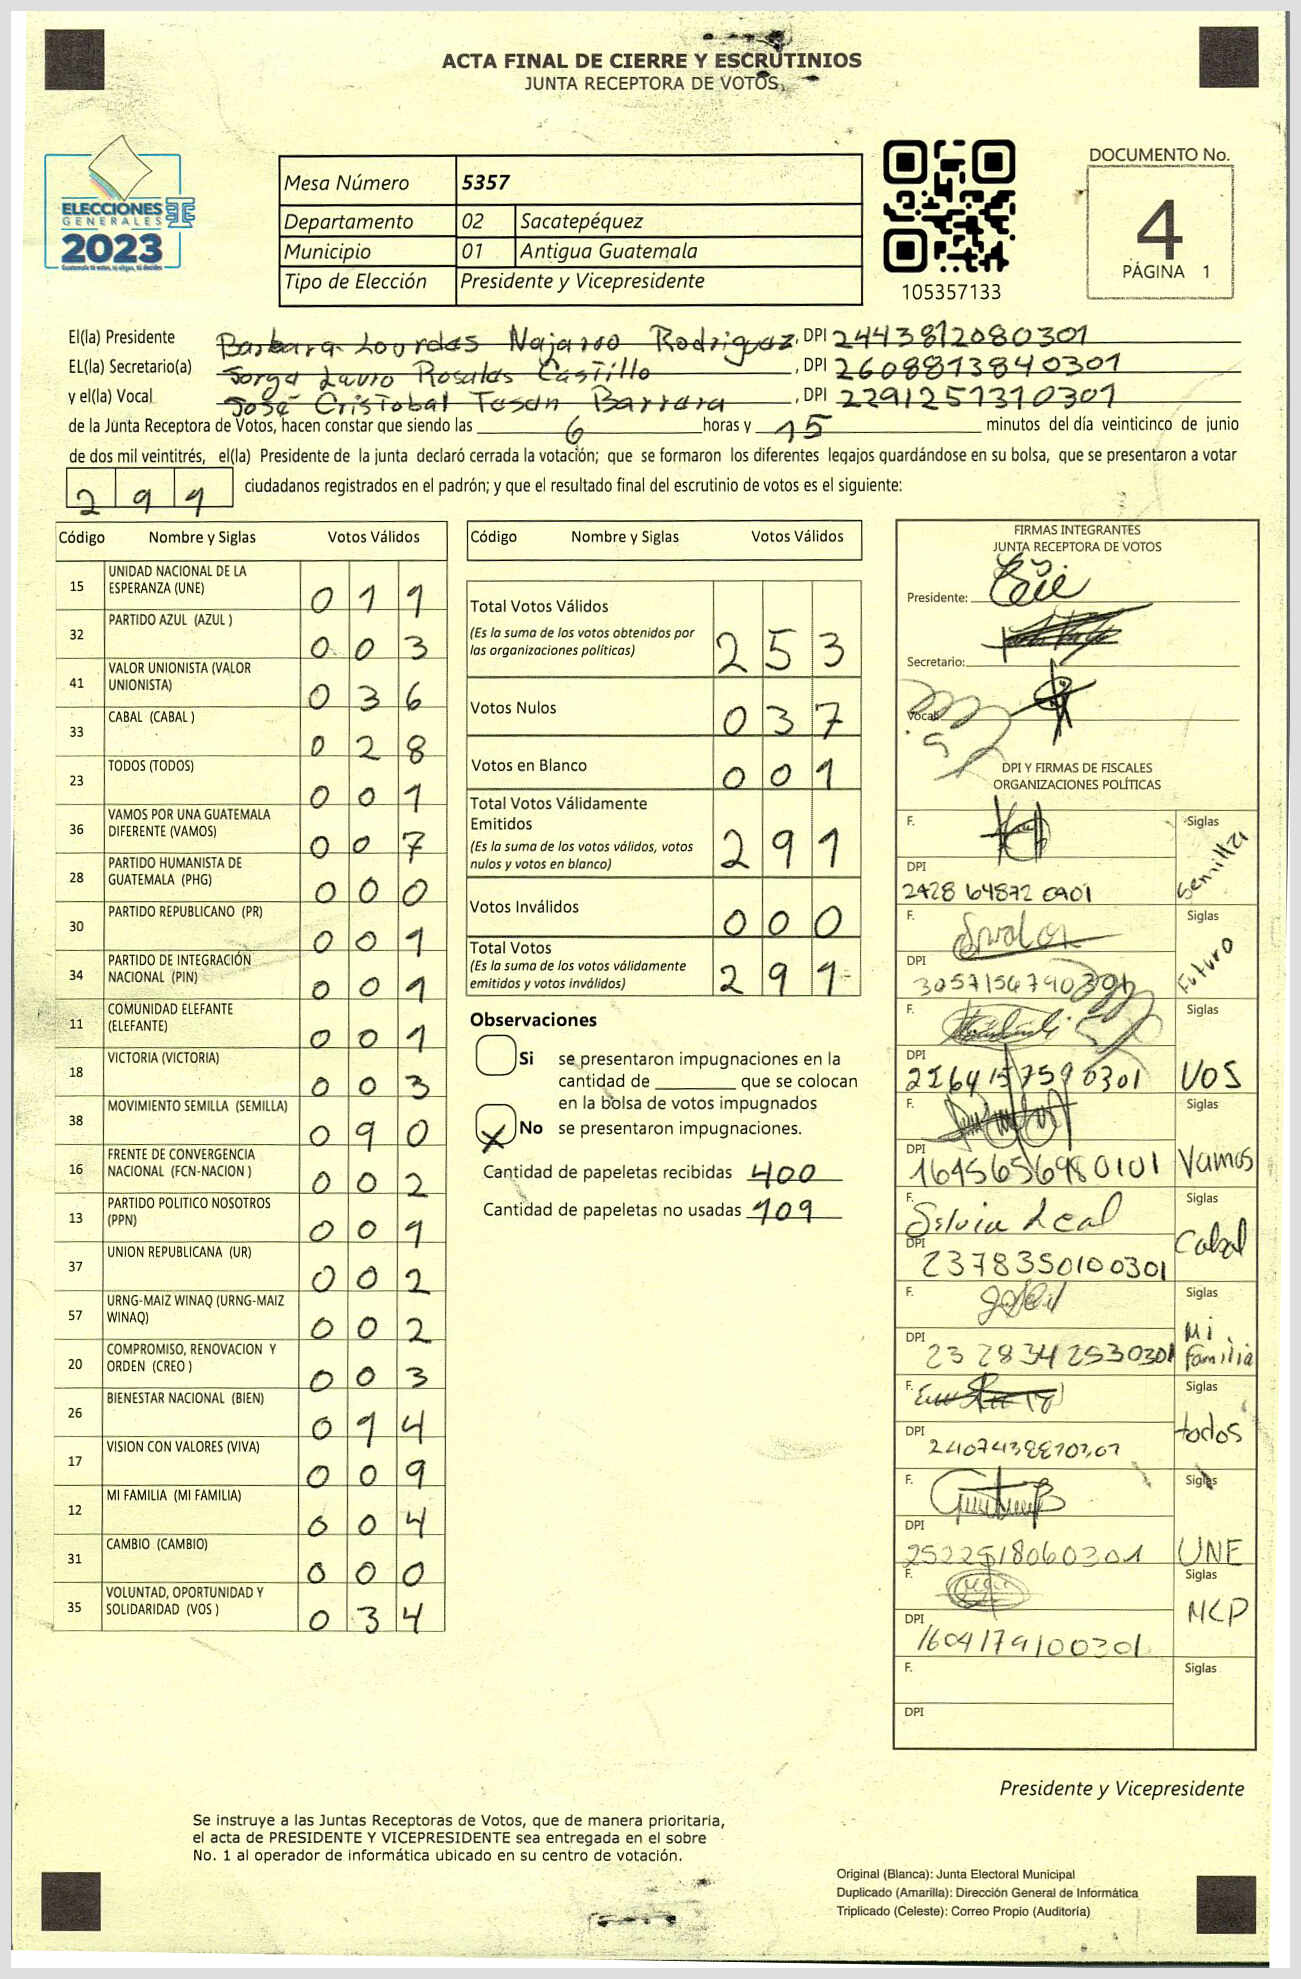 ACTA FINAL DE CIERRE Y ESCRUTINIOS
JUNTA RECEPTORA DE VOTOS
ELECCIONES
GENERALES
2023
Guatemala tú votas, tú eliges, tú decides
Mesa Número 5357
Departamento 02 Sacatepéquez
Municipio 01 Antigua Guatemala
Tipo de Elección Presidente y Vicepresidente
105357133
DOCUMENTO No.
4
PÁGINA 1
El(la) Presidente Barbara Lourdes Najarro Rodriguez, DPI 2443812080301
EL(la) Secretario(a) Jorge Lauro Rosales Castillo, DPI 2608813840301
y el(la) Vocal José Cristobal Tasen Barrera, DPI 2291251310301
de la Junta Receptora de Votos, hacen constar que siendo las 6 horas y 15 minutos del día veinticinco de junio
de dos mil veintitrés, el(la) Presidente de la junta declaró cerrada la votación; que se formaron los diferentes legajos guardándose en su bolsa, que se presentaron a votar
291 ciudadanos registrados en el padrón; y que el resultado final del escrutinio de votos es el siguiente:
Código Nombre y Siglas Votos Válidos
15 UNIDAD NACIONAL DE LA ESPERANZA (UNE) 011
32 PARTIDO AZUL (AZUL ) 003
41 VALOR UNIONISTA (VALOR UNIONISTA) 036
33 CABAL (CABAL ) 028
23 TODOS (TODOS) 001
36 VAMOS POR UNA GUATEMALA DIFERENTE (VAMOS) 007
28 PARTIDO HUMANISTA DE GUATEMALA (PHG) 000
30 PARTIDO REPUBLICANO (PR) 001
34 PARTIDO DE INTEGRACIÓN NACIONAL (PIN) 001
11 COMUNIDAD ELEFANTE (ELEFANTE) 001
18 VICTORIA (VICTORIA) 003
38 MOVIMIENTO SEMILLA (SEMILLA) 090
16 FRENTE DE CONVERGENCIA NACIONAL (FCN-NACION ) 002
13 PARTIDO POLITICO NOSOTROS (PPN) 001
37 UNION REPUBLICANA (UR) 002
57 URNG-MAIZ WINAQ (URNG-MAIZ WINAQ) 002
20 COMPROMISO, RENOVACION Y ORDEN (CREO ) 003
26 BIENESTAR NACIONAL (BIEN) 014
17 VISION CON VALORES (VIVA) 009
12 MI FAMILIA (MI FAMILIA) 004
31 CAMBIO (CAMBIO) 000
35 VOLUNTAD, OPORTUNIDAD Y SOLIDARIDAD (VOS ) 034
Código Nombre y Siglas Votos Válidos
Total Votos Válidos 253
(Es la suma de los votos obtenidos por
las organizaciones políticas)
Votos Nulos 037
Votos en Blanco 001
Total Votos Válidamente
Emitidos 291
(Es la suma de los votos válidos, votos
nulos y votos en blanco)
Votos Inválidos 000
Total Votos 291
(Es la suma de los votos válidamente
emitidos y votos inválidos)
Observaciones
Si se presentaron impugnaciones en la
cantidad de ________ que se colocan
en la bolsa de votos impugnados
X No se presentaron impugnaciones.
Cantidad de papeletas recibidas 400
Cantidad de papeletas no usadas 109
FIRMAS INTEGRANTES
JUNTA RECEPTORA DE VOTOS
Presidente:
Secretario:
Vocal:
DPI Y FIRMAS DE FISCALES
ORGANIZACIONES POLÍTICAS
F. Siglas Semilla
DPI 2428 64872 0901
F. Siglas Futuro
DPI
F. Siglas VOS
DPI 2264157590301
F. Siglas Vamos
DPI 1645656980101
F. Silvia Leal Siglas Cabal
DPI 2378350100301
F. Siglas Mi Familia
DPI 23 2834 2530301
F. Siglas todos
DPI
F. Siglas UNE
DPI 2522518060301
F. Siglas NCP
DPI 1604179100301
F. Siglas
DPI
Presidente y Vicepresidente
Se instruye a las Juntas Receptoras de Votos, que de manera prioritaria,
el acta de PRESIDENTE Y VICEPRESIDENTE sea entregada en el sobre
No. 1 al operador de informática ubicado en su centro de votación.
Original (Blanca): Junta Electoral Municipal
Duplicado (Amarilla): Dirección General de Informática
Triplicado (Celeste): Correo Propio (Auditoría)